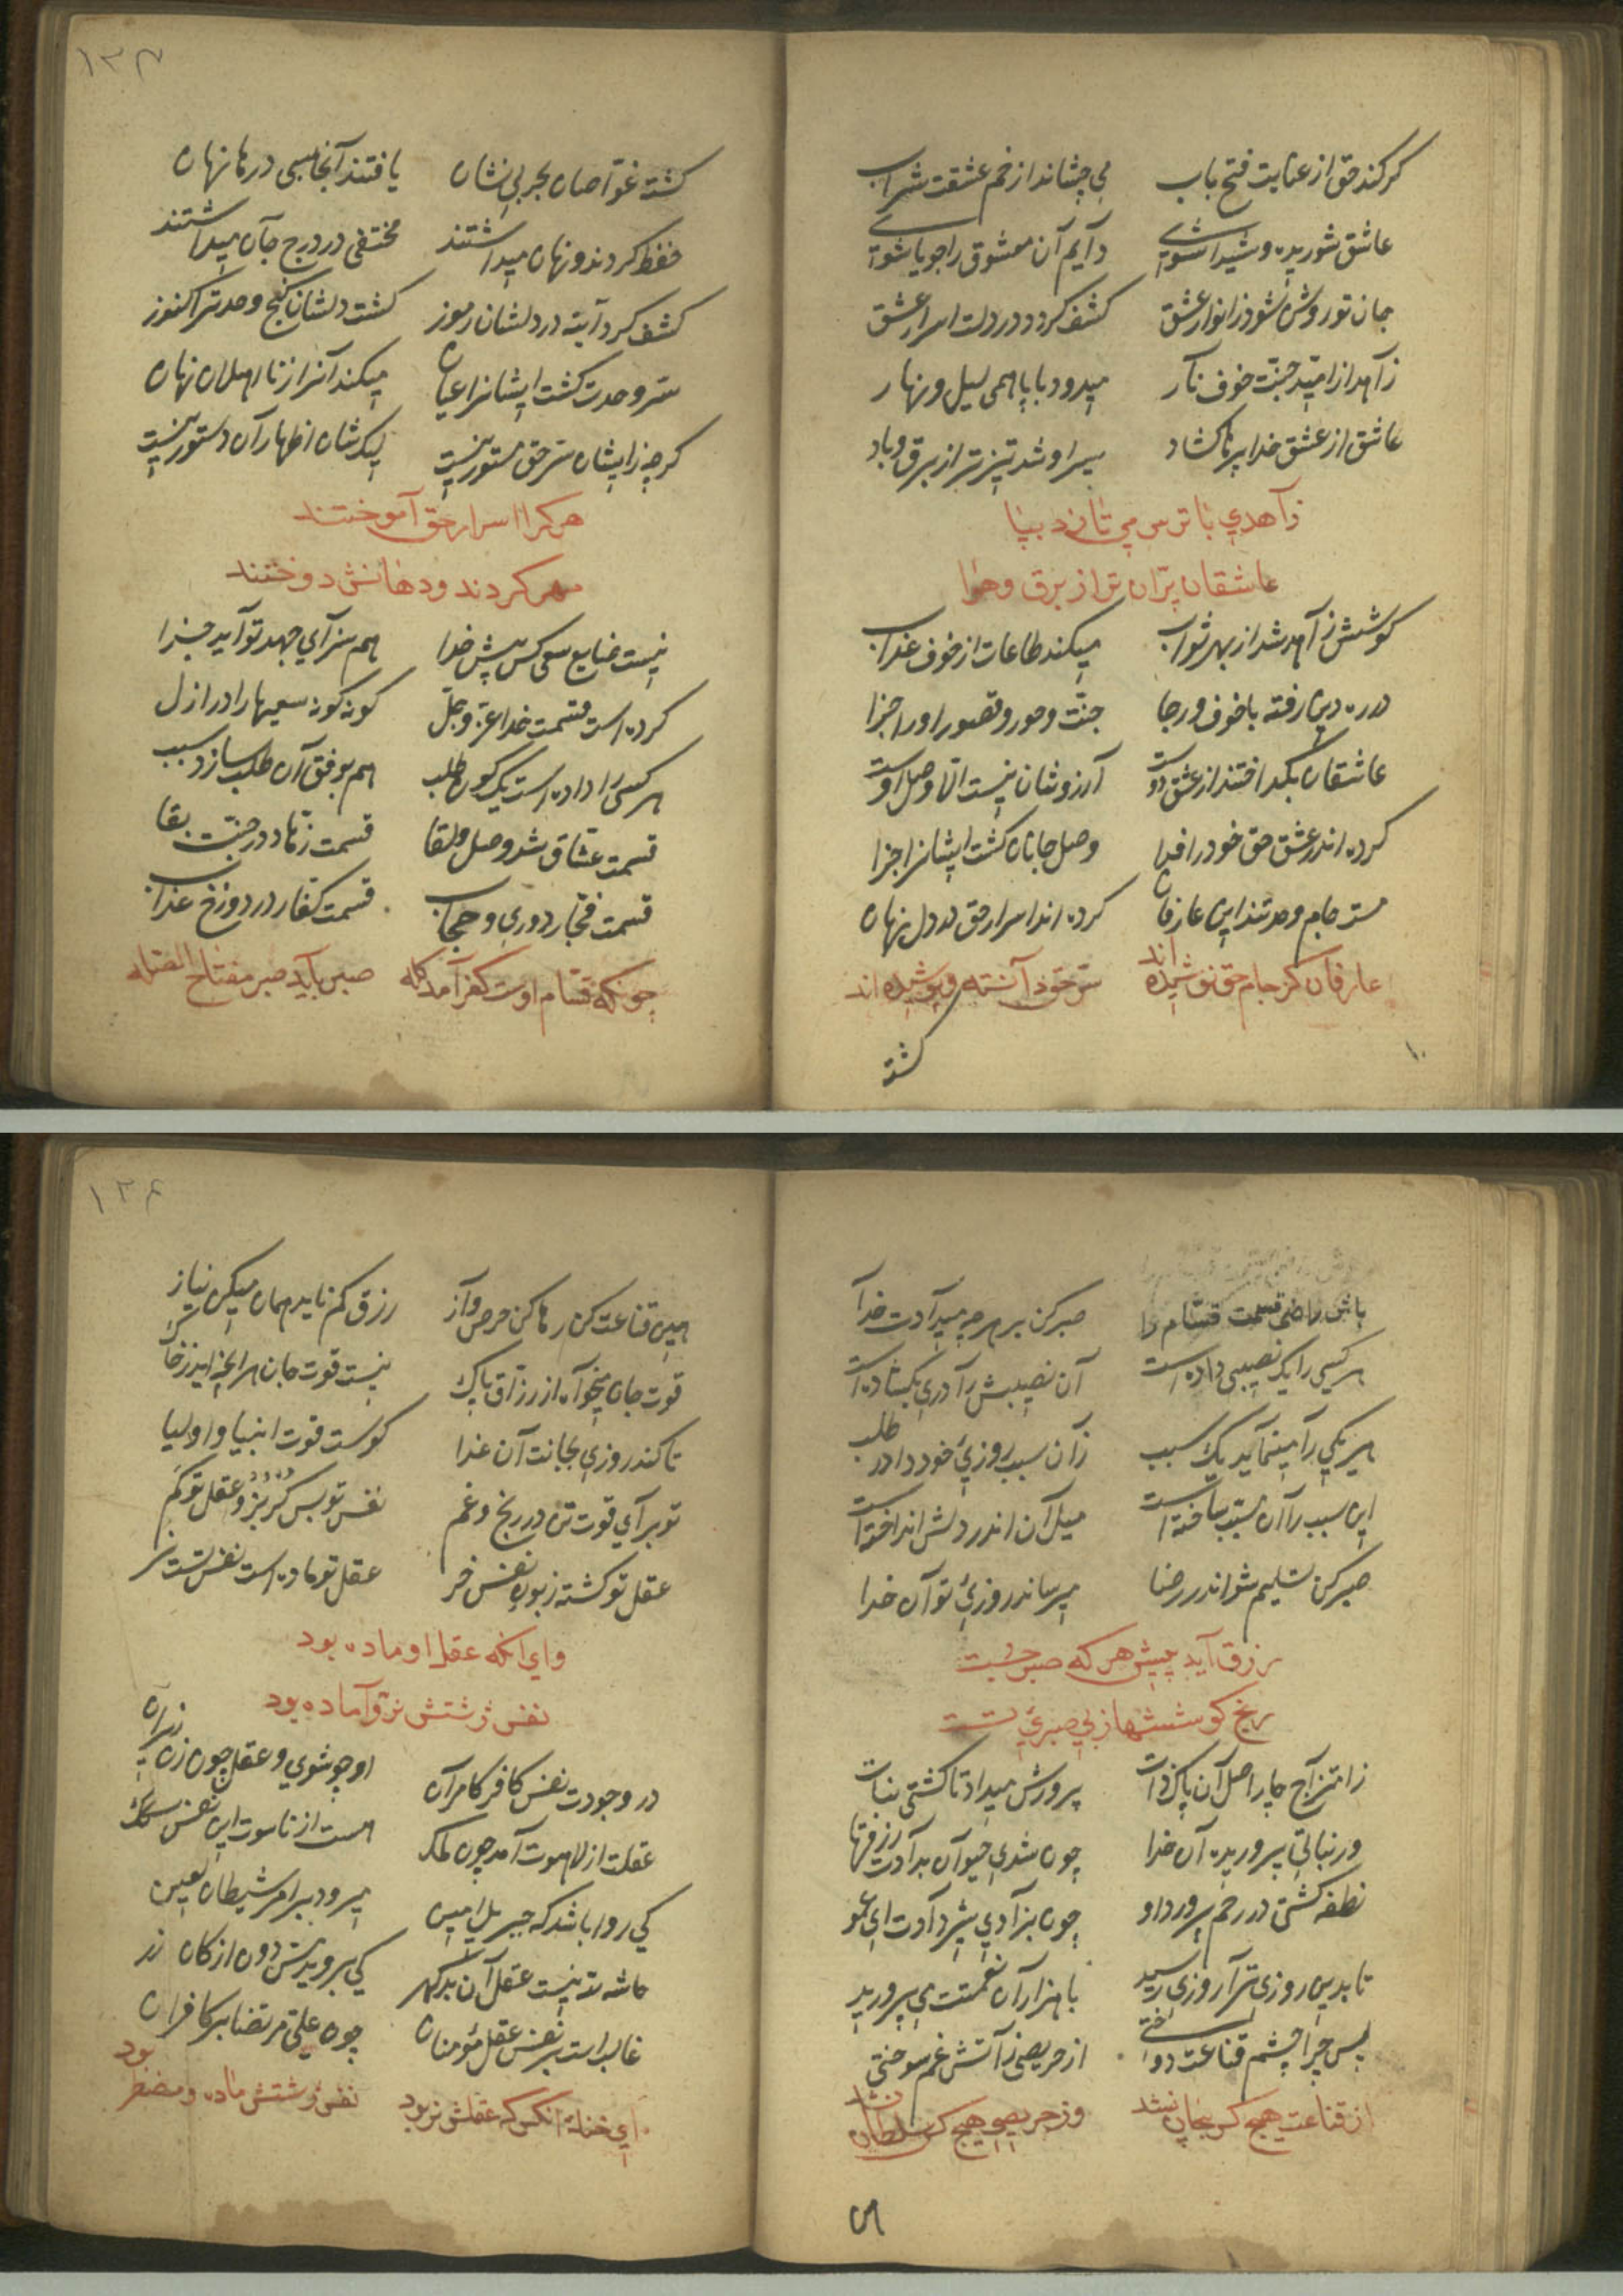 کر کند حق از عنایت فتح باب می چشاند از خم عشقت شراب
عاشق شوریده و شیدا شوی دایم آن معشوق را جویا شوی
جان تو روشن شود ز انوار عشق کشف کردد در دلت اسرار عشق
زاهد از امید جنت خوف نار میدود با پا همی لیل و نهار
عاشق از عشق خدا پرها کشاد سیر او شد تیزتر از برق و باد
زاهدی با ترس می تازد بپا
عاشقان پران تر از برق و هوا
کوشش زاهد شد از بهر ثواب میکند طاعات از خوف عذاب
در ره دین رفته با خوف و رجا جنت و حور و قصور او را جزا
عاشقان بگداختند از عشق دوست آرزوشان نیست الا وصل اوست
کرده اندر عشق حق خود را فدا وصل جانان کشت ایشانرا جزا
مست جام وحدتند این عارفان کرده اند اسرار حق در دل نهان
عارفان کز جام حق نوشیده اند سر حق دانسته و پوشیده اند
کشته
۱۳۳
کشته غواصان بحر بی نشان یافتند آنجا بسی درها نهان
حفظ کردند و نهان میداشتند مختفی در درج جان میداشتند
کشف کرد آیه در دلشان رموز کشت دلشان کنج وحدت را کنوز
سر وحدت کشت ایشانرا عیان میکنند آنرا ز نااهلان نهان
کرچه زایشان سر حق مستور نیست لیک شان اظهار آن دستور نیست
هر کرا اسرار حق آموختند
مهر کردند و دهانش دوختند
نیست ضایع سعی کس پیش خدا هم سزای جهد تو آید جزا
کرده است قسمت خدا عز و جل کونه کونه سعیها را در ازل
هر کسی را داده است یک کون طلب هم بوفق آن طلب سازد سبب
قسمت عشاق شد وصل و لقا قسمت زهاد در جنت بقا
قسمت فجار دوری و حجاب قسمت کفار در دوزخ عذاب
چونکه قسام اوست کفر آمد کله صبر باید صبر مفتاح الصله
باش راضی قسمت قسام را صبر کن بر هرچه میآدت خدا
هر کسی را یک نصیبی داده است آن نصیبش را دری بکشاده است
هر یکی را مینماید یک سبب زان سبب روزی خود دارد طلب
این سبب را آن مسبب ساخته است میل آن اندر دلش انداخته است
صبر کن تسلیم شو اندر رضا میرساند روزی تو آن خدا
رزق آید پیش هر که صبر جست
رنج کوششها ز بی صبری تست
ز امتزاج چار اصل آن پاک ذات پرورش میداد تا کشتی نبات
در نباتی پروریده آن خدا چون شدی حیوان بدادت رزقها
نطفه کشتی در رحم پرورد او چون بزادی شیر دادت ای عمو
تا بدین روزی ترا روزی رسید با هزاران نعمتت می پرورید
پس چرا چشم قناعت دوختی از حریصی ز آتش غم سوختی
از قناعت هیچ کس بیجان نشد وز حریصی هیچ کس سلطان نشد
۱۳۴
هین قناعت کن رها کن حرص و آز رزق کم ناید همان میکن نیاز
قوت جان میخواه از رزاق پاک نیست قوت جان هر آنچه زاید ز خاک
تا کند روزی بجانت آن غذا کوست قوت انبیا و اولیا
تو برای قوت تن در رنج و غم نفس تو بس کربز و عقل تو کم
عقل تو کشته زبون نفس خر عقل تو ماده است نفس تست نر
وای آنکه عقل او ماده بود
نفس زشتش نر و آماده بود
در وجودت نفس کافر کامران او چو شوی و عقل چون زن زیر آن
عقلت از لاهوت آمد چون ملک هست از ناسوت این نفس سگک
کی روا باشد که جبریل امین میرود بر امر شیطان لعین
حاشه لله نیست عقل آن بد کهر کی برو بد نفس دون از کان زر
غالب است بر نفس عقل مؤمنان چون علی مرتضا بر کافران
ای خنک آنکس که عقلش نر بود نفس زشتش ماده و مضطر بود